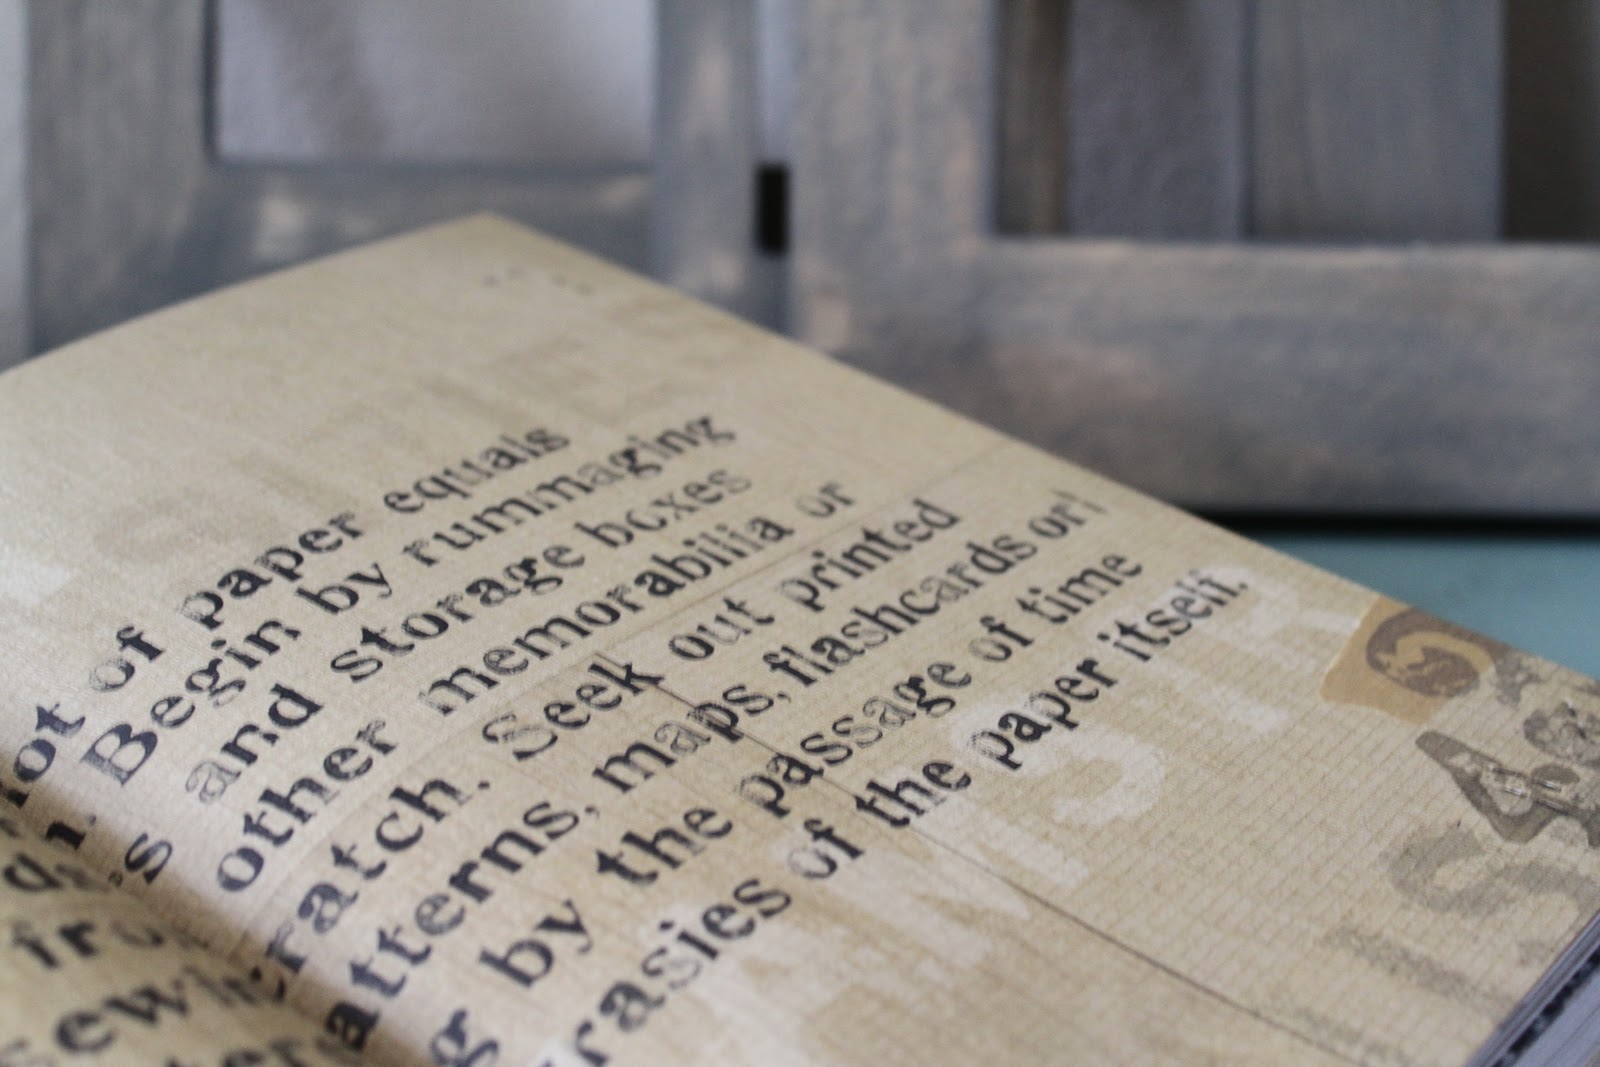 ot of paper equals
n. Begin by rummaging
s and storage boxes
other memorabilia or
ratch. Seek out printed
atterns, maps, flashcards or
g by the passage of time
rasies of the paper itself.
d
fro
sewin
ter